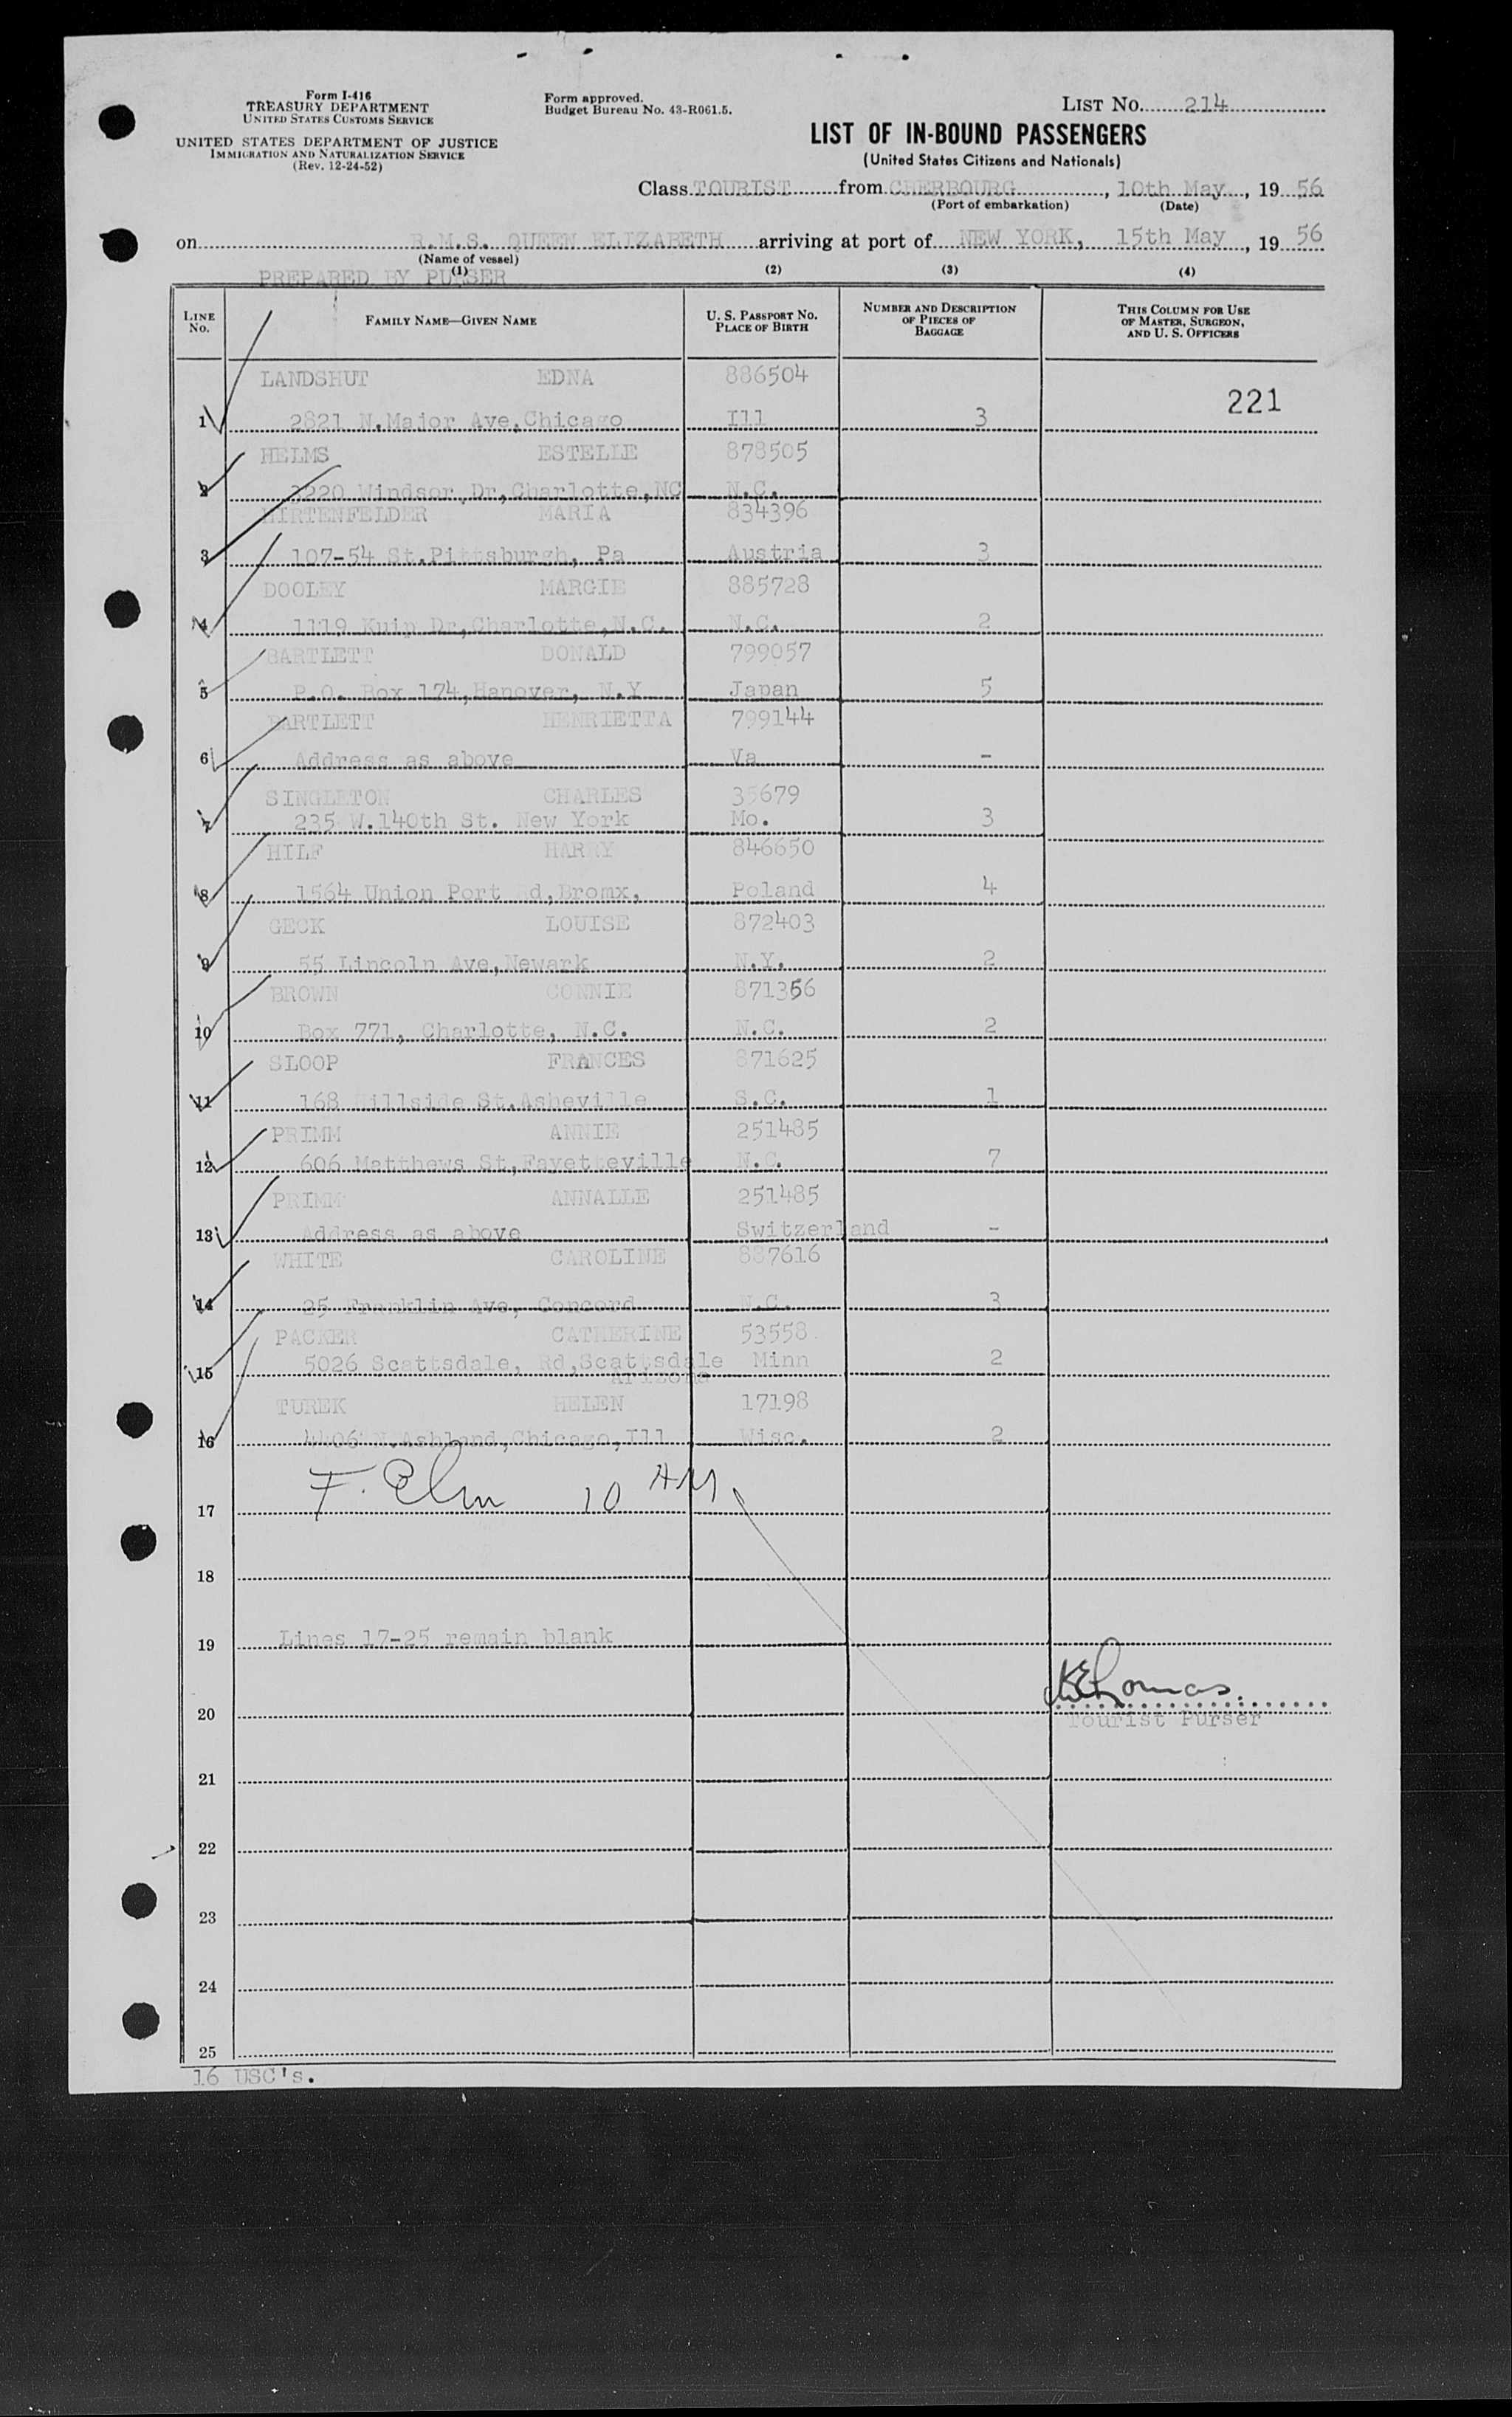 Form I-416
TREASURY DEPARTMENT
UNITED STATES CUSTOMS SERVICE
UNITED STATES DEPARTMENT OF JUSTICE
IMMIGRATION AND NATURALIZATION SERVICE
(Rev. 12-24-52)
Form approved.
Budget Bureau No. 43-R061.5.
LIST NO. 214
LIST OF IN-BOUND PASSENGERS
(United States Citizens and Nationals)
Class TOURIST from CHERBOURG, 10th May, 19 56
(Port of embarkation) (Date)
on R.M.S. QUEEN ELIZABETH arriving at port of NEW YORK, 15th May, 19 56
(Name of vessel)
PREPARED BY PURSER
(1) (2) (3) (4)
LINE NO. FAMILY NAME—GIVEN NAME U. S. PASSPORT NO. PLACE OF BIRTH NUMBER AND DESCRIPTION OF PIECES OF BAGGAGE THIS COLUMN FOR USE OF MASTER, SURGEON, AND U. S. OFFICERS
LANDSHUT EDNA 886504
221
1 2821 N.Major Ave,Chicago Ill 3
HELMS ESTELLE 878505
2 3220 Windsor Dr,Charlotte,NC N.C.
HIRTENFELDER MARIA 834396
3 107-54 St.Pittsburgh, Pa Austria 3
DOOLEY MARGIE 885728
4 1119 Kuip Dr,Charlotte,N.C. N.C. 2
BARTLETT DONALD 799057
5 P.O. Box 174,Hanover, N.Y Japan 5
BARTLETT HENRIETTA 799144
6 Address as above Va -
SINGLETON CHARLES 35679
7 235 W.140th St. New York Mo. 3
HILF HARRY 846650
8 1564 Union Port Rd,Bromx, Poland 4
GECK LOUISE 872403
9 55 Lincoln Ave,Newark N.Y. 2
BROWN CONNIE 871356
10 Box 771, Charlotte, N.C. N.C. 2
SLOOP FRANCES 871625
11 168 Hillside St.Asheville S.C. 1
PRIMM ANNIE 251485
12 606 Matthews St,Fayetteville N.C. 7
PRIMM ANNALLE 251485
13 Address as above Switzerland -
WHITE CAROLINE 887616
14 25 Franklin Ave, Concord N.C. 3
PACKER CATHERINE 53558
15 5026 Scattsdale, Rd,Scattsdale Minn 2
Arizona
TUREK HELEN 17198
16 4406 N.Ashland,Chicago,Ill Wisc. 2
17 F. 10 AM
18
19 Lines 17-25 remain blank
Thomas.
20
Tourist Purser
21
22
23
24
25
16 USC's.